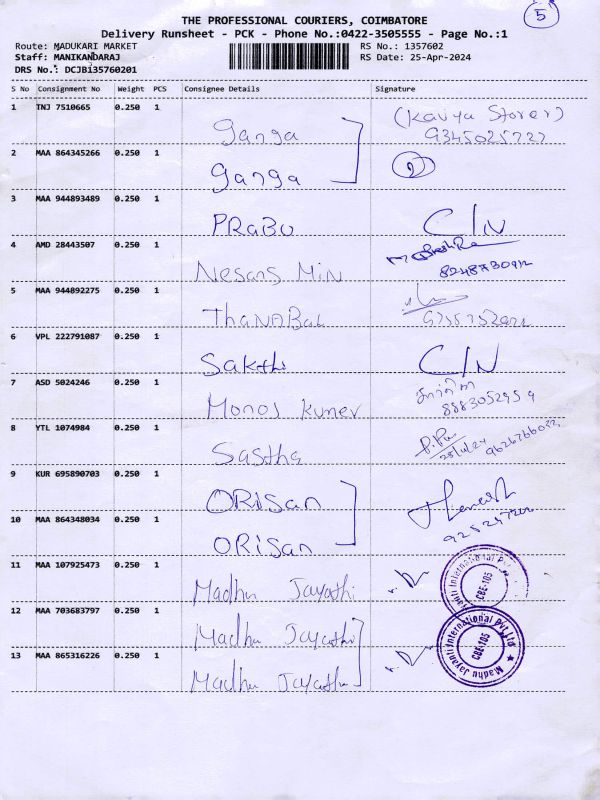 5
THE PROFESSIONAL COURIERS, COIMBATORE
Delivery Runsheet - PCK - Phone No.:0422-3505555 - Page No.:1
Route: MADUKARI MARKET RS No.: 1357602
Staff: MANIKANDARAJ RS Date: 25-Apr-2024
DRS No.: DCJBi35760201
S No Consignment No Weight PCS Consignee Details Signature
1 TNJ 7510665 0.250 1 Ganga (Kaviya Stores)
9345025727
2 MAA 864345266 0.250 1 Ganga
3 MAA 944893489 0.250 1 PRABU C/N
4 AMD 28443507 0.250 1 Nesans Min
5 MAA 944892275 0.250 1 ThaNABaL
6 VPL 222791087 0.250 1 Sakthi C/N
7 ASD 5024246 0.250 1 Monoj Kumer
8883052959
8 YTL 1074984 0.250 1 Sastha
25/4/24 9626766022
9 KUR 695890703 0.250 1 ORiSan
10 MAA 864348034 0.250 1 ORiSan
11 MAA 107925473 0.250 1 Madhu Jayathi
CBE-105
12 MAA 703683797 0.250 1 Madhu Jayathi
13 MAA 865316226 0.250 1 Madhu Jayathi
Madhu Jayanti International Pvt Ltd
CBE-105